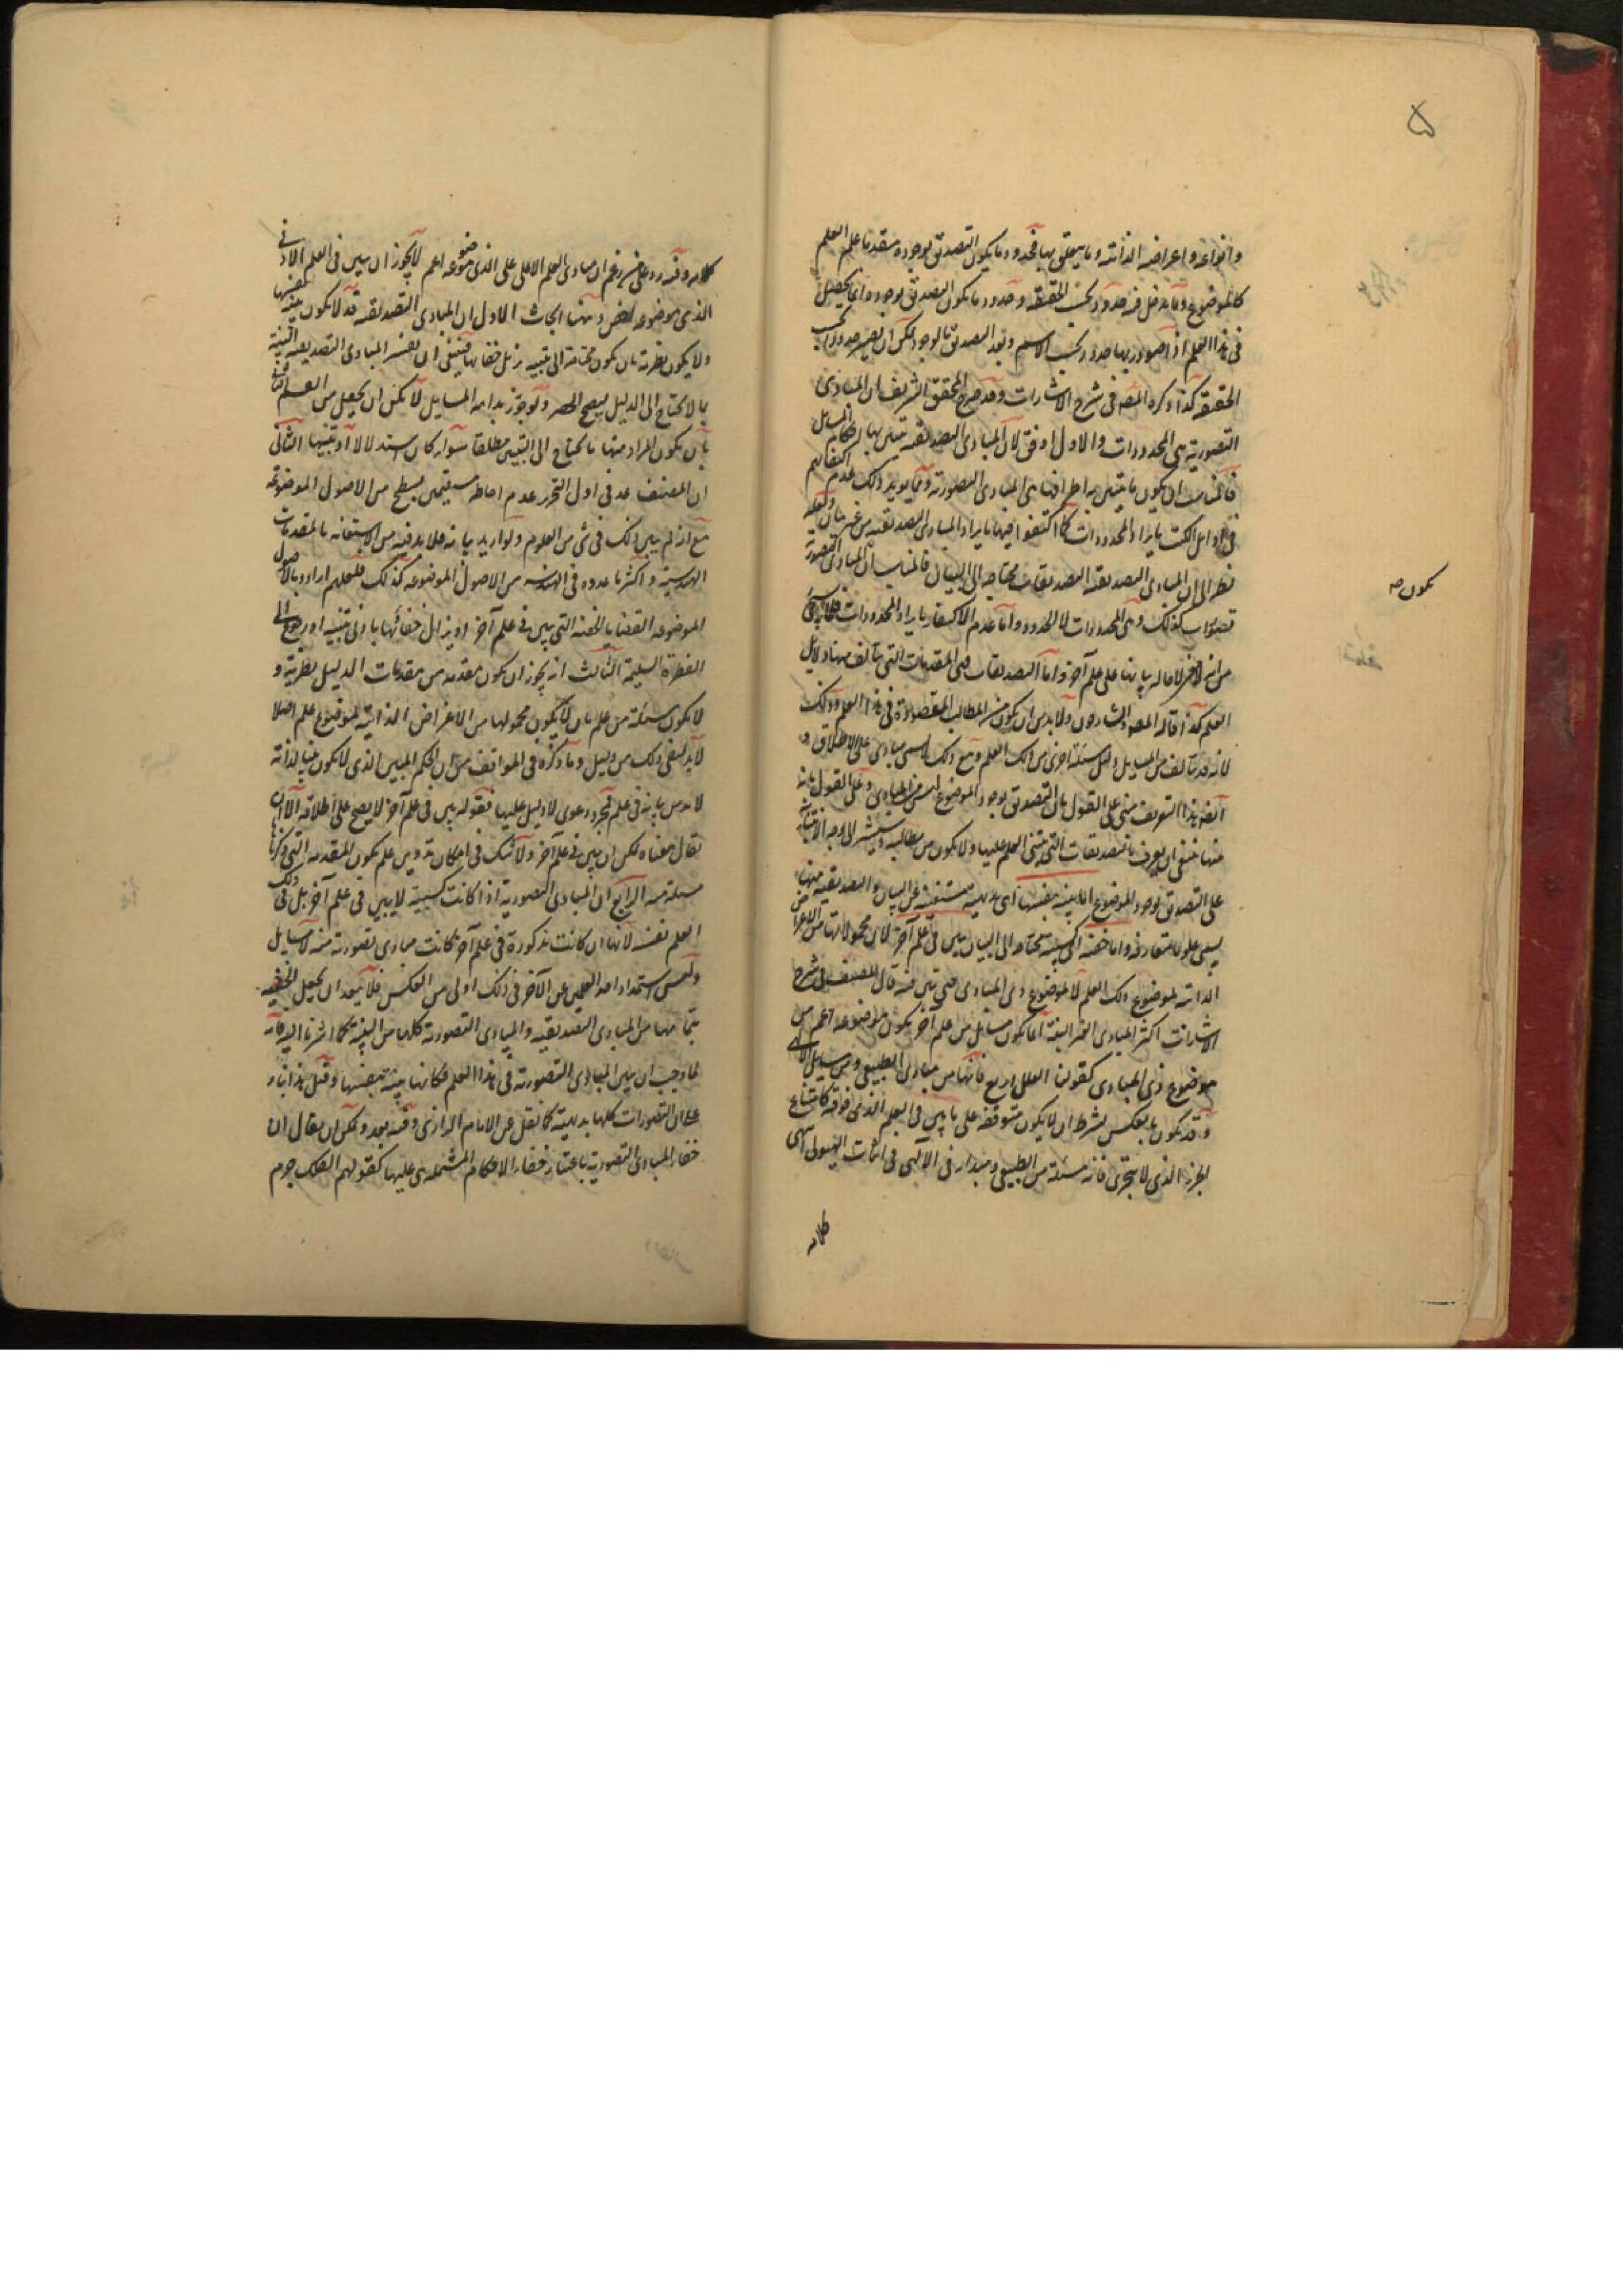 ۵
وانواعه واعراضه الذاتية وما يتعلق بها فحدود ما يكون التصديق بوجوده متقدما على العلم
كالموضوع وما يدخل فيه حدود بحسب الحقيقة وحدود ما يكون التصديق بوجوده انما يحصل
فى هذا العلم اذا صدر بها حدود بحسب الاسم وبعد التصديق بالوجود يمكن ان يصير حدودا بحسب
الحقيقة كذا ذكره المصنف فى شرح الاشارات وقد صرح المحقق الشريف ان المبادى
التصورية هى المحدودات والاول اوفق لان المبادى التصديقية يتبين بها احكام المسائل
فالمناسب ان يكون ما يتبين به اطرافها هى المبادى التصورية ومما يؤيد ذلك عدم اكتفائهم
فى اوايل الكتب بايراد المحدودات كما اكتفوا فيها بايراد المبادى التصديقية من غير بيان
نظرا الى ان المبادى التصديقية التصديقات محتاجة الى البيان فالمناسب ان المبادى التصورية
يكون صه
تصورات كذلك وهى المحدودات لا الحدود واما عدم الاكتفاء بايراد المحدودات
من انه لا احالة بيانها على علم آخر واما التصديقات فهى المقدمات التى يتألف منها دلايل
العلم كذا قاله المصنف والشارحون ولا بد من ان يكون من المطالب المقصودة فى هذا العلم وذلك
لانه قد يتألف من المسايل دليل مسئلة اخرى من ذلك العلم ومع ذلك لا يسمى مبادى على الاطلاق و
ايضا هذا التعريف مبنى على القول بان التصديق بوجود الموضوع ليس من المبادى وعلى القول بانه
منها ينبغى ان يعرف بالتصديقات التى يبتنى العلم عليها ولا يكون من مطالبه وسيشير الى وجه الابتناء
على التصديق بوجود الموضوع اما بينة بنفسها اى بديهية مستغنية عن البيان والتصديقية منها
يسمى علوما متعارفة واما خفية اى كسبية محتاجة الى البيان يتبين فى علم آخر لان محمولاتها من الاعراض
الذاتية لموضوع ذلك العلم لا لموضوع ذى المبادى حتى يتبين فيه قال المصنف فى شرح
الاشارات اكثر المبادى الغير البينة انما يكون مسايل من علم آخر يكون موضوعه اعم من
موضوع ذى المبادى كقولنا العلل اربع فانها من مبادى الطبيعى ومن مسايل الالهى
وقد يكون بالعكس بشرط ان لا يكون متوقفة على ما يبين فى العلم الذى فوقه كامتناع
الجزء الذى لا يتجزى فانه مسئلة من الطبيعى ومبدأ فى الآلهى فى اثبات الهيولى انتهى
كلامه
كلامه وفيه رد على من زعم ان مبادى العلم الاعلى على الذى موضوعه اعم لا يجوز ان يبين فى العلم الادنى
الذى موضوعه اخص وههنا ابحاث الاول ان المبادى التصديقية قد لا يكون بينة بنفسها
ولا يكون نظرية بان يكون محتاجة الى تنبيه يزيل خفاءها فينبغى ان يفسر المبادى التصديقية البينة
بما لا يحتاج الى الدليل ليصح الحصر ولو جوز بداهة المسايل لا يمكن ان يجعل من القسم الثانى
بان يكون المراد منها ما يحتاج الى التبيين مطلقا سواء كان استدلالا او تنبيها الثانى
ان المصنف عد فى اول التحرير عدم احاطة مستقيمين بسطح من الاصول الموضوعة
مع انه لم يبين ذلك فى شى من العلوم ولو اريد بيانه فلا بد فيه من الاستعانة بالمقدمات
الهندسية واكثر ما عدوه فى الهندسة من الاصول الموضوعة كذلك فلعلهم ارادوا بالاصول
الموضوعة القضايا الخفية التى يبين فى علم آخر او يزال خفائها بادنى تنبيه او رجوع الى
الفطرة السليمة الثالث انه يجوز ان يكون مقدمة من مقدمات الدليل نظرية و
لا يكون مسئلة من علم بان لا يكون محمولها من الاعراض الذاتية لموضوع علم اصلا
لا بد لنفى ذلك من دليل وما ذكره فى المواقف من ان الحكم المبين الذى لا يكون بينا لذاته
لا بد من بيانه فى علم فمجرد دعوى لا دليل عليها فقوله يبين فى علم آخر لا يصح على اطلاقه الا ان
يقال معناه يمكن ان يبين فى علم آخر ولا شك فى امكان تدوين علم يكون المقدمة التى ذكرنا
مسئلة منه الرابع ان المبادى التصورية اذا كانت كسبية لا يبين فى علم آخر بل فى ذلك
العلم نفسه لانها ان كانت مذكورة فى علم آخر كانت مبادى تصورية منه لا مسايل
وليس استمداد احد العلمين عن الآخر فى ذلك اولى من العكس فلا يبعد ان يجعل الخفية
بتمامها من المبادى التصديقية والمبادى التصورية كلها من البينة كما اشرنا اليه فانه
لما وجب ان يبين المبادى التصورية فى هذا العلم فكانها بينة بنفسها وقيل هذا بناء
على ان التصورات كلها بديهية كما نقل عن الامام الرازى وفيه بعد ويمكن ان يقال ان
خفاء المبادى التصورية باعتبار خفاء الاحكام المشتملة هى عليها كقولهم الفلك جرم